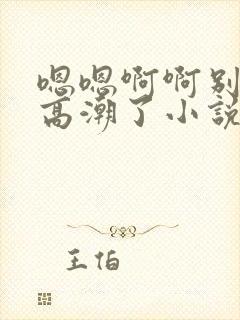 嗯嗯啊啊别
高潮了小説
王怕